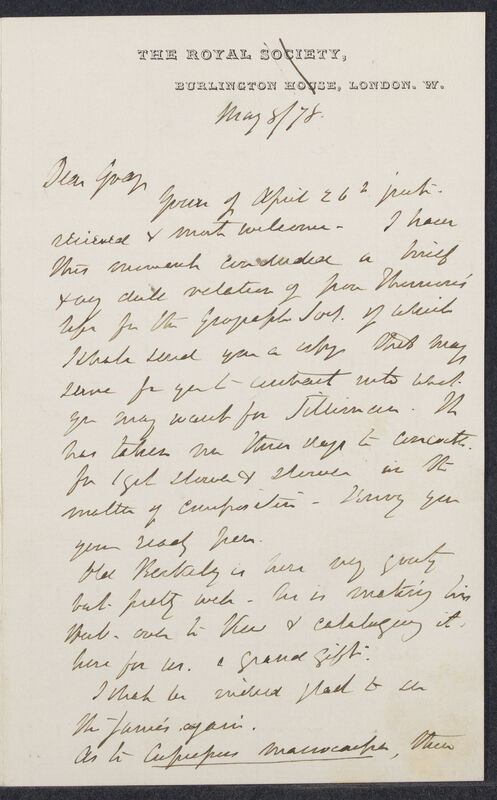 THE ROYAL SOCIETY,
BURLINGTON HOUSE, LONDON. W.
May 8/78.
Dear Gray
Yours of April 26th just
received & most welcome - I have
this moment concluded a brief
& very dull relation of poor Thomson's
life for the Geograph Soct. of which
I shall send you a copy that may
serve for you to contract into what
you may want for Silliman. It
has taken me three days to concoct.
for I get slower & slower in the
matter of composition - I envy you
your ready pen.
Old Berkeley is here very gouty
but pretty well - he is making his
Herb. over to Kew & cataloguing it
here for us. a grand gift.
I shall be indeed glad to see
the James again.
As to Cupressus macrocarpa, there